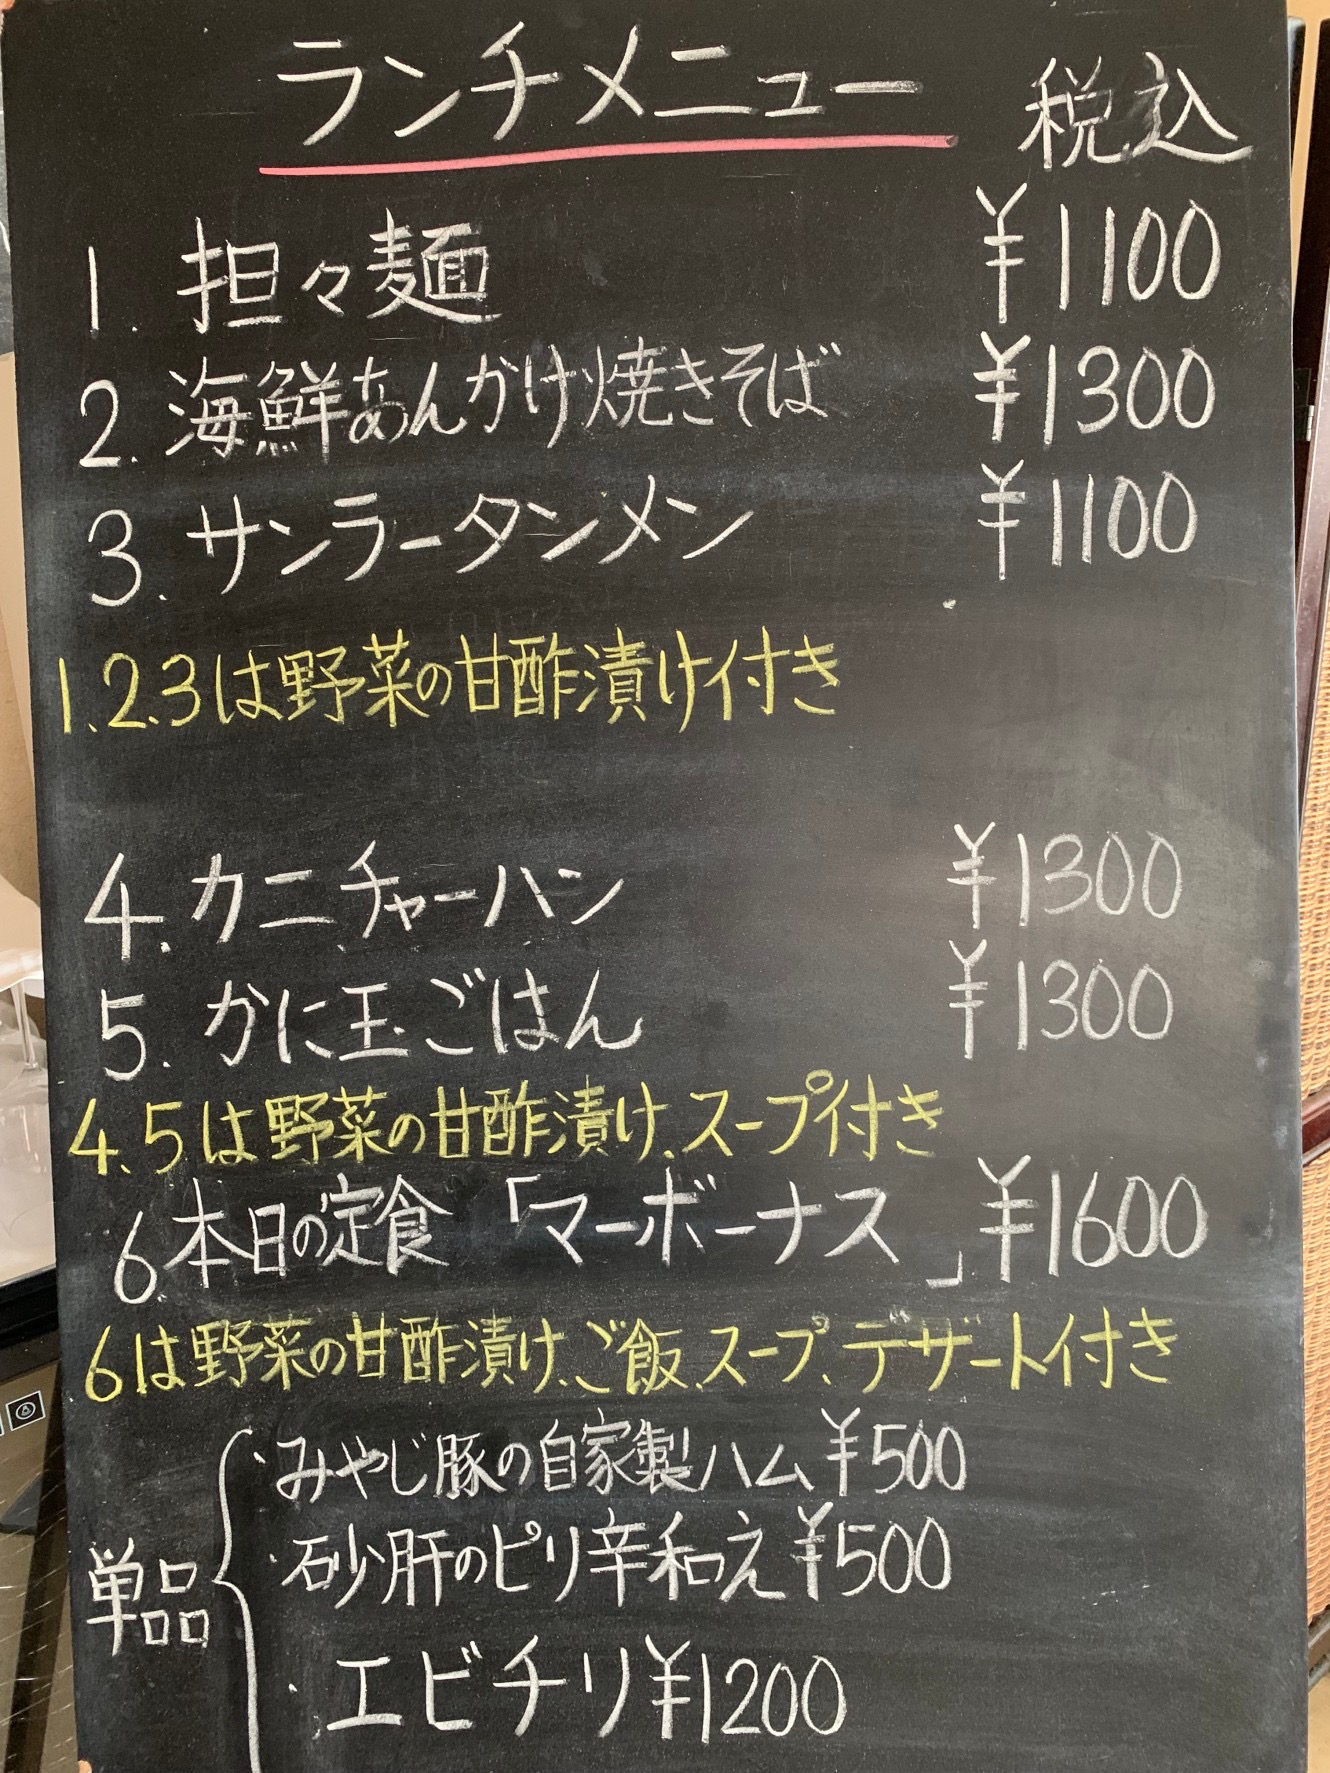 ランチメニュー 税込
1. 担々麺 ¥1100
2. 海鮮あんかけ焼きそば ¥1300
3. サンラータンメン ¥1100
1.2.3は野菜の甘酢漬け付き
4. カニチャーハン ¥1300
5. かに玉ごはん ¥1300
4.5は野菜の甘酢漬け、スープ付き
6.本日の定食「マーボーナス」¥1600
6は野菜の甘酢漬け、ご飯、スープ、デザート付き
単品
・みやじ豚の自家製ハム ¥500
・砂肝のピリ辛和え ¥500
・エビチリ ¥1200